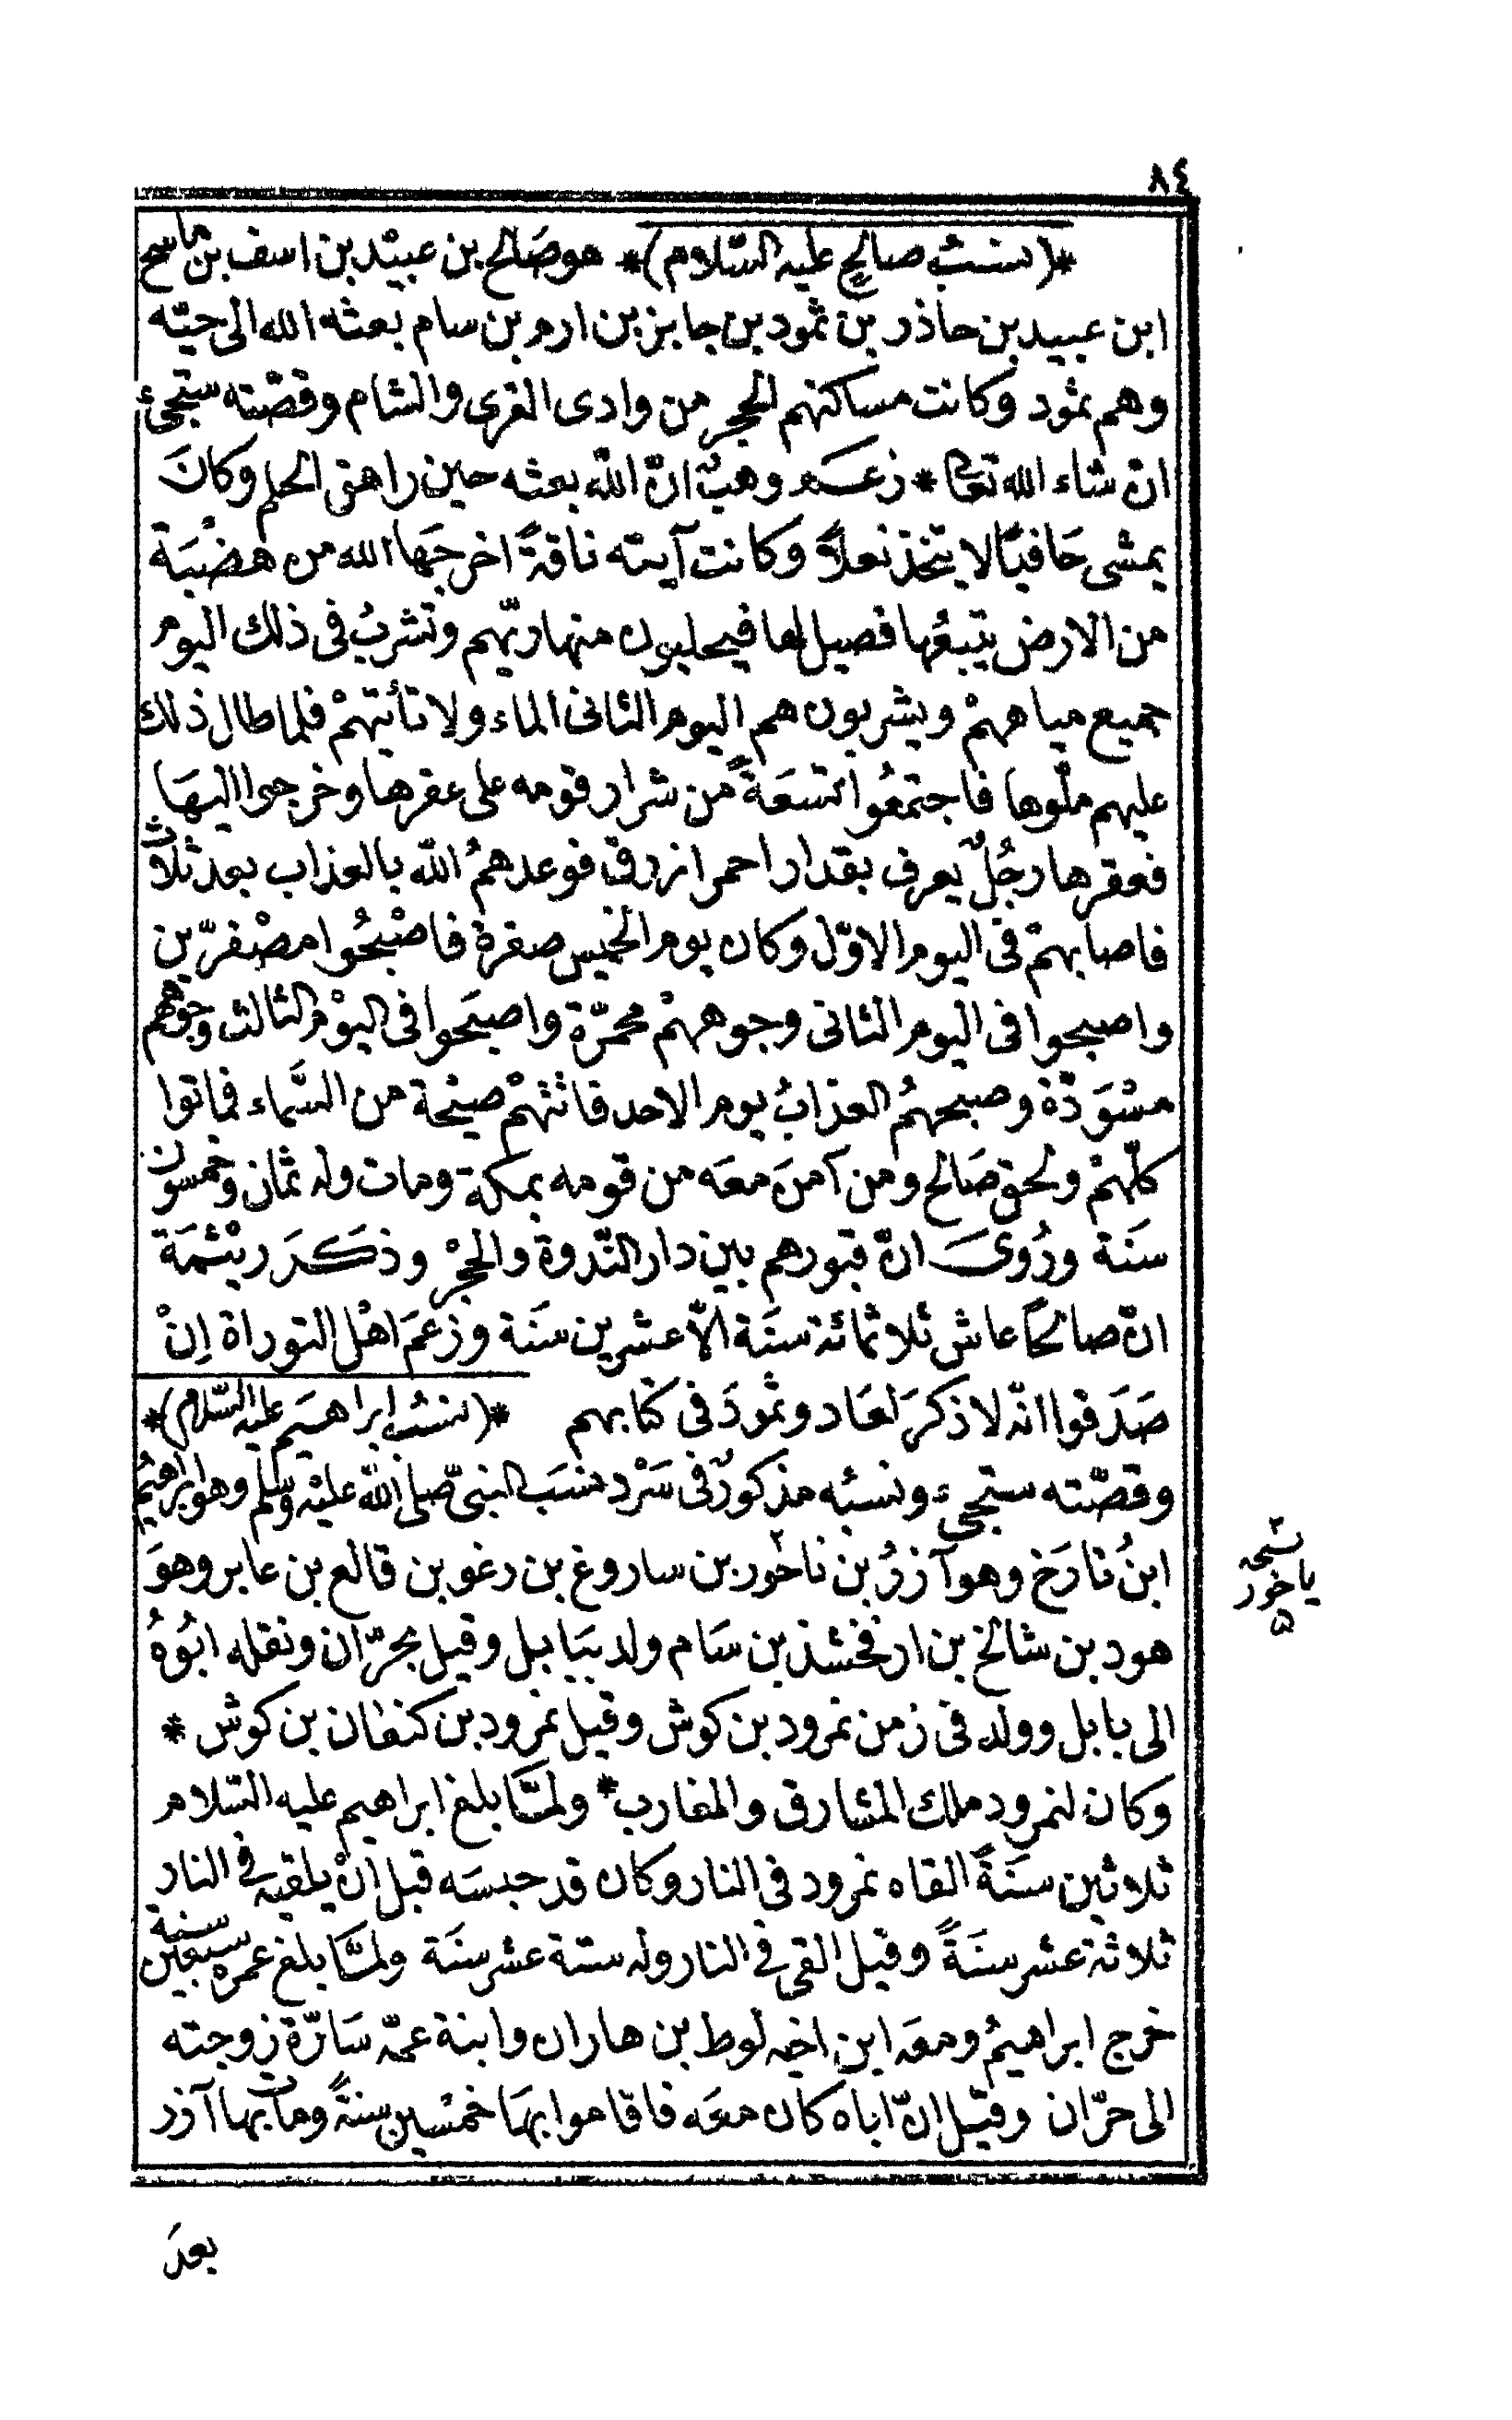 ٨٤
*(نسب صالح عليه السّلام)* هو صَالح بن عبيْد بن اسف بن ماسح
ابن عبيد بن حاذر بن ثمود بن جابز بن ارم بن سام بعثه الله الى حيّه
وهم ثمود وكانت مساكنهم الحجر من وادى القرى والشام وقصّته ستجئ
انْ شاء الله تعالى * زعم وهبٌ انّ اللّه بعثه حين راهق الحلم وكانَ
يمشى حَافيًا لا يتّخذ نعلاً وكانت آيته ناقةً اخرجَها الله من هضْبَة
من الارض يتبعُها فصيل لها فيحلبون منها ريّهم وتشربُ فى ذلك اليوم
جميع مياههمْ ويشربون هم اليوم الثانى الماء ولا تأتيهمْ فلما طال ذلك
عليهم ملّوها فاجتمعُوا تسَعَةً من شرار قومه على عقرها وخرجوا اليهَا
فعقرها رجُلٌ يعرف بقدار احمر ازرق فوعدهمُ اللّه بالعذاب بعد ثلاث
فاصابهمْ فى اليوم الاوّل وكان يوم الخميس صفرة فاصْبحُوا مصْفرّين
واصبحوا فى اليوم الثانى وجوههمْ محمرّة واصبَحوا فى اليوْم الثالث وجوههم
مسْوَدّة وصبحهمُ العذابُ يوم الاحد فاتتهمْ صيْحة من السَّماء فماتوا
كلّهمْ ولحق صَالح ومن آمنَ معَه من قومه بمكة ومات وله ثمان وخمسون
سنَة ورُوىَ انّ قبورهم بين دار النّدوة والحجْر وذكَرَ ريْثمَة
انّ صالحًا عاش ثلاثمائة سنَة الّا عشرين سنَة وزعمَ اهْل التوراة اِنْ
صَدَقوا انّه لا ذكرَ لعَاد وثمودَ فى كتابهم *(نسب ابراهيم عليه السّلام)*
وقصّته ستجىء ونسبُه مذكورٌ فى سَرْد نسَب النبىّ صلى اللّه عليْه وسلم وهو ابراهيمُ
ابنُ تارَخ وهو آزرُ بن ناخور بن ساروغ بن رغو بن قالع بن عابر وهوَ
هود بن شالخ بن ارفخشذ بن سَام ولد ببَابل وقيل بحرّان ونقله ابُوهُ
الى بابل وولد فى زمن نمرود بن كوش وقيل نمرود بن كنعان بن كوش *
وكان لنمرود ملك المشارق والمغارب * ولمّا بلغ ابراهيم عليه السّلام
ثلاثين سنَةً القاه نمرود فى النار وكان قد حبسَه قبل انْ يلقيه فى النار
ثلاثة عشر سنَةً وقيل القى فى النار وله ستة عشر سنَة ولمَّا بلغ عمره سبعين سنة
خرج ابراهيمُ ومعَه ابن اخيه لوط بن هاران وابنة عمّه سَارّة زوجته
الى حرّان وقيْل انّ اباه كان معَه فاقاموا بهَا خمْسين سنةً ومات بها آذر
نسخه
ياخور
بعدَ